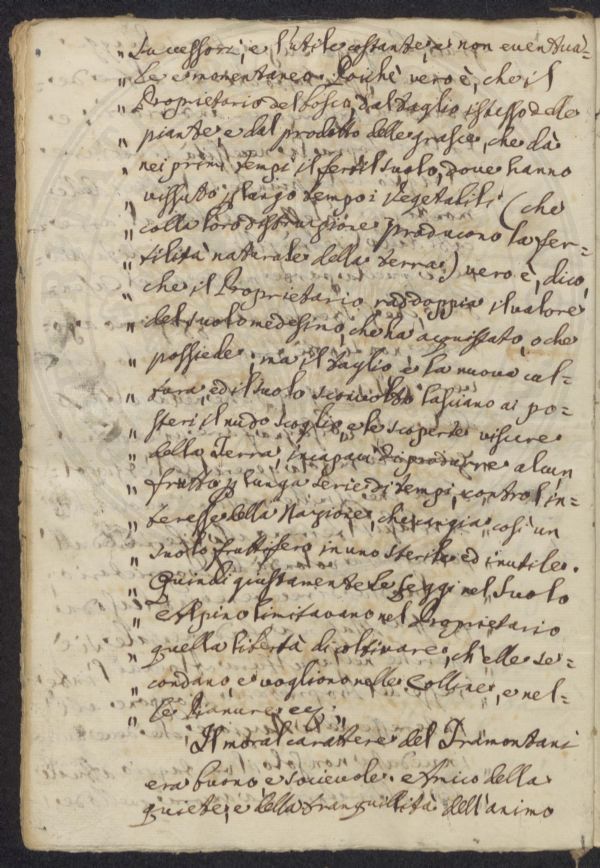 „ Successori, e l'utile costante, e non eventua=
„ le e momentaneo. Poichè vero è, che il
„ Proprietario del bosco, dal taglio istesso delle
„ piante, e dal prodotto delle grasce, che dà
„ nei primi tempi il fertil suolo, dove hanno
„ vissuto p lungo tempo i Vegetabili (che
„ colla loro distruzione producono la fer=
„ tilità naturale della terra) vero è, dico,
„ che il Proprietario raddoppia il valore
„ del suolo medesimo, che ha acquistato, o che
„ possiede; ma il taglio e la nuova cul=
„ tura, ed il suolo scenuolto lasciano ai po=
„ steri il nudo scoglio, e le scoperte viscere
„ della Terra, incapaci di produrre alcun
„ frutto p lunga serie di tempi, contro l'in=
„ teresse della Nazione, che cangia così un
„ suolo fruttifero in uno sterile ed inutile.
„ Quindi giustamente le Leggi nel Suolo
„ Alpino limitavano nel Proprietario
„ quella libertà di coltivare, ch'elle se=
„ condano, e vogliono nelle Colline, e nel=
„ le Pianure &c „
Il moral carattere del Tramontani
era buono e socievole. Amico della
quiete, e della tranquillità dell'animo